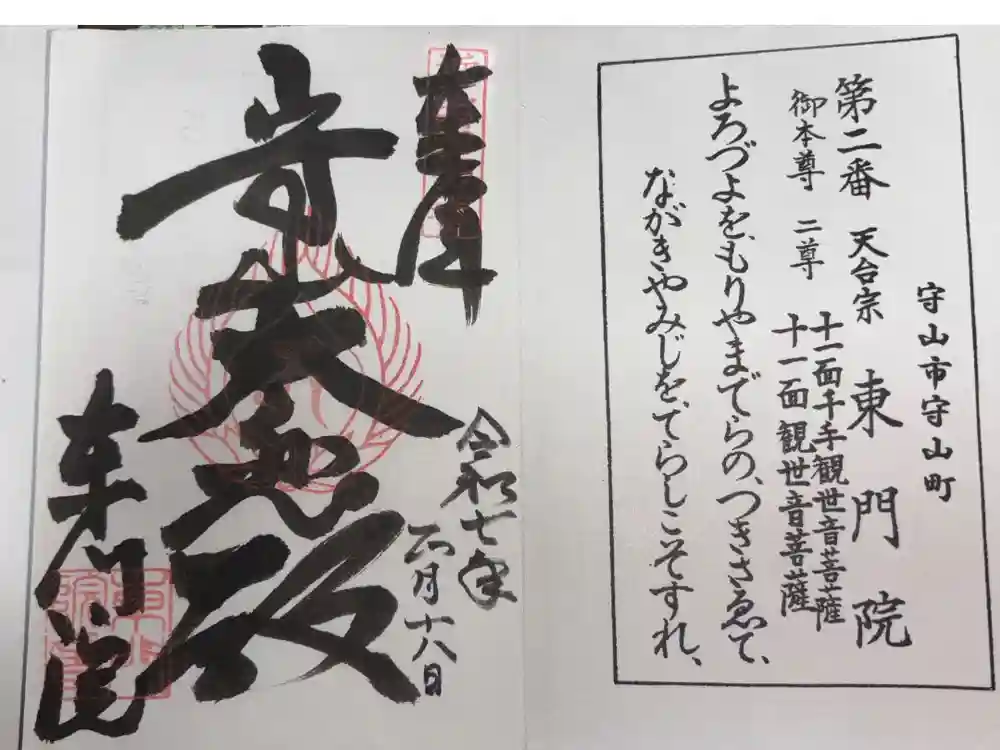 守山市守山町
第二番 天台宗 東門院
御本尊 二尊 十一面千手観世音菩薩
十一面観世音菩薩
よろづよを、もりやまでらの、つきさゑて、
ながきやみじを、てらしこそすれ、
奉拝
令和七年
月十八日
大悲殿
東門院